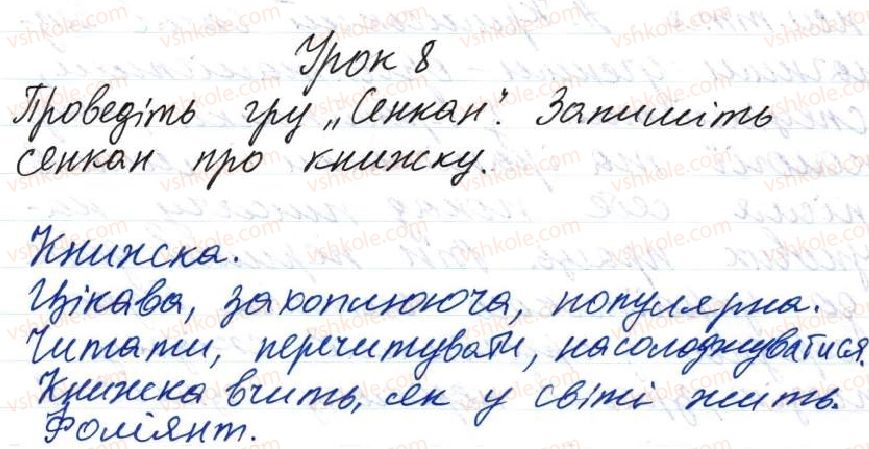 Урок 8
Проведіть гру „Сенкан". Запишіть
сенкан про книжку.
Книжка.
Цікава, захоплююча, популярна.
Читати, перечитувати, насолоджуватися.
Книжка вчить, як у світі жить.
Фоліянт.